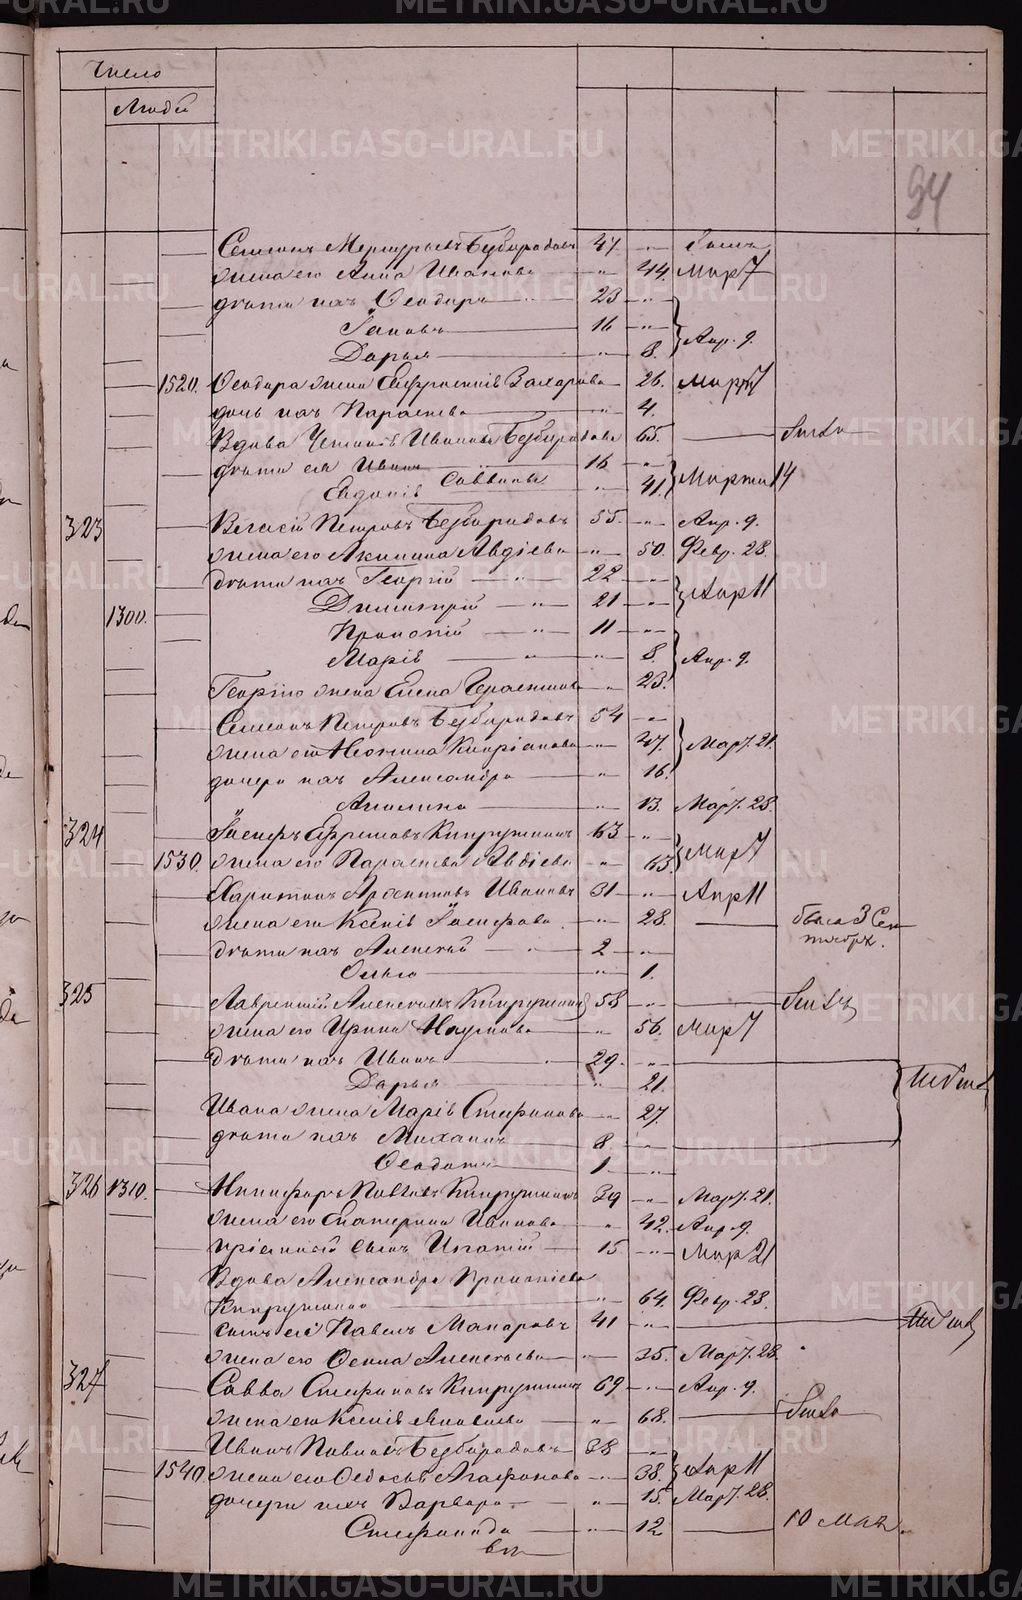 METRIKI.GASO-URAL.RU
Число
Людей
94
Семионъ Меркурьевъ Безбородовъ 47. „ былъ
жена его Анна Иванова „ 44. Мар 7
дѣти ихъ Ѳеодоръ 23 „
Іаковъ 16 „
Дарья „ 8. Апр. 9.
1520. Ѳеодора жена Евфросинія Захарова 26. Мар 7
дочь ихъ Параскева „ 4.
Вдова Иванова Безбородова 65.
дѣти ея Иванъ 16 „
Евдокія Саввины „ 41. Марта 14
323 Василій Петровъ Безбородовъ 55. „ Апр. 9.
жена его Акилина Авдіева „ 50. Февр. 28.
дѣти ихъ Георгій „ 22 „
Димитрій „ 21 „ Апр 11
1300. Прокопій „ 11 „
Марія „ „ 8. Апр. 9.
Георгія жена Елена Герасимова „ 23.
Семионъ Петровъ Безбородовъ 54 „
жена его Неонила Кипріанова „ 47. Мар. 21.
дочери ихъ Александра „ 16.
Акилина „ 13. Мар. 28
324 Іосифъ Ефремовъ Кипрушкинъ 63 „
1530. жена его Параскева Авдіева „ 63. Мар 7
Харитонъ Арсентіевъ Ивановъ 31 „ Апр 11
жена его Ксенія Іосифова „ 28. была 3 Сен
тября.
дѣти ихъ Алексѣй „ 2 „
Ольга „ 1.
325 Лаврентій Алексѣевъ Кипрушкинъ 58 „
жена его Ирина Наумова „ 56. Мар 7
дѣти ихъ Иванъ 29. „
Дарья „ 21.
Ивана жена Марія Стефанова „ 27.
дѣти ихъ Михаилъ 8. „
Ѳеодотъ 1 „
326 1310. Никифоръ Павловъ Кипрушкинъ 39 „ Мар. 21.
жена его Екатерина Иванова „ 42. Апр. 9.
пріемный сынъ Игнатій 15 „ Мар 21
Вдова Александра Прокопіева
Кипрушкина „ 64. Февр. 28.
сынъ её Павелъ Макаровъ 41 „
жена его Ѳекла Алексѣева „ 35. Мар. 28.
327 Савва Стефановъ Кипрушкинъ 69 „ Апр. 9.
жена его Ксенія Яковлева „ 68.
Иванъ Павловъ Безбородовъ 38 „
1540. жена его Ѳедосья Агафонова „ 38. Апр 11
дочери ихъ Варвара „ 15. Мар. 28.
Стефанида „ 12 10 мая.